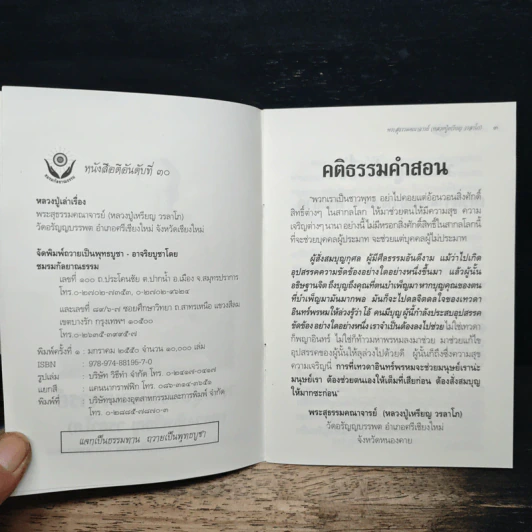 หนังสือดีอันดับที่ ๓๐
หลวงปู่เล่าเรื่อง
พระสุธรรมคณาจารย์ (หลวงปู่เหรียญ วรลาโภ)
วัดอรัญญบรรพต อำเภอศรีเชียงใหม่ จังหวัดหนองคาย
จัดพิมพ์ถวายเป็นพุทธบูชา - อาจริยบูชาโดย
ชมรมกัลยาณธรรม
เลขที่ ๑๐๐ ถ.ประโคนชัย ต.ปากน้ำ อ.เมือง จ.สมุทรปราการ
โทร.๐-๒๗๐๒-๗๓๕๓, ๐-๒๗๐๒-๙๖๒๔
และเลขที่ ๘๗/๖-๗ ซอยศึกษาวิทยา ถ.สาทรเหนือ แขวงสีลม
เขตบางรัก กรุงเทพฯ ๑๐๕๐๐
โทร.๐-๒๖๓๕-๓๙๙๘
พิมพ์ครั้งที่ ๑ : มกราคม ๒๕๕๐ จำนวน ๑๐,๐๐๐ เล่ม
ISBN : 978-974-88196-7-0
รูปเล่ม : บริษัท วิธีทำ จำกัด โทร.
แยกสี : แคนนากราฟฟิก โทร. ๐๘๖-๓๑๔-๓๖๕๑
พิมพ์ที่ : บริษัทขุมทองอุตสาหกรรมและการพิมพ์ จำกัด
โทร. ๐-๒๘๘๕-๗๘๗๐-๓
แจกเป็นธรรมทาน ถวายเป็นพุทธบูชา
พระสุธรรมคณาจารย์ (หลวงปู่เหรียญ วรลาโภ) ๓
คติธรรมคำสอน
"พวกเราเป็นชาวพุทธ อย่าไปคอยแต่อ้อนวอนสิ่งศักดิ์
สิทธิ์ต่างๆ ในสากลโลก ให้มาช่วยตนให้มีความสุข ความ
เจริญต่างๆ นานา อย่างนี้ ไม่มีหรอกสิ่งศักดิ์สิทธิ์ในสากลโลกนี้
ที่จะช่วยบุคคลผู้ประมาท จะช่วยแต่บุคคลผู้ไม่ประมาท
ผู้สั่งสมบุญกุศล ผู้มีศีลธรรมอันดีงาม แม้ว่าไปเกิด
อุปสรรคความขัดข้องอย่างใดอย่างหนึ่งขึ้นมา แล้วผู้นั้น
อธิษฐานจิต ถึงบุญถึงคุณที่ตนบำเพ็ญมา หากบุญคุณของตน
ที่บำเพ็ญมามันมากพอ มันก็จะไปดลจิตดลใจของเทวดา
อินทร์พรหมให้ล่วงรู้ว่า โอ้ คนมีบุญผู้นี้กำลังประสบอุปสรรค
ขัดข้องอย่างใดอย่างหนึ่ง เราจำเป็นต้องลงไปช่วย ไม่ใช่เทวดา
ก็พญาอินทร์ ไม่ใช่ก็ท้าวมหาพรหมลงมาช่วย มาช่วยแก้ไข
อุปสรรคของผู้นั้นให้ลุล่วงไปด้วยดี ผู้นั้นก็ถึงซึ่งความสุข
ความเจริญนี้ การที่เทวดาอินทร์พรหมจะช่วยมนุษย์เรานี่นะ
มนุษย์เรา ต้องช่วยตนเองให้เต็มที่เสียก่อน ต้องสั่งสมบุญ
ให้มากซะก่อน"
พระสุธรรมคณาจารย์ (หลวงปู่เหรียญ วรลาโภ)
วัดอรัญญบรรพต อำเภอศรีเชียงใหม่
จังหวัดหนองคาย